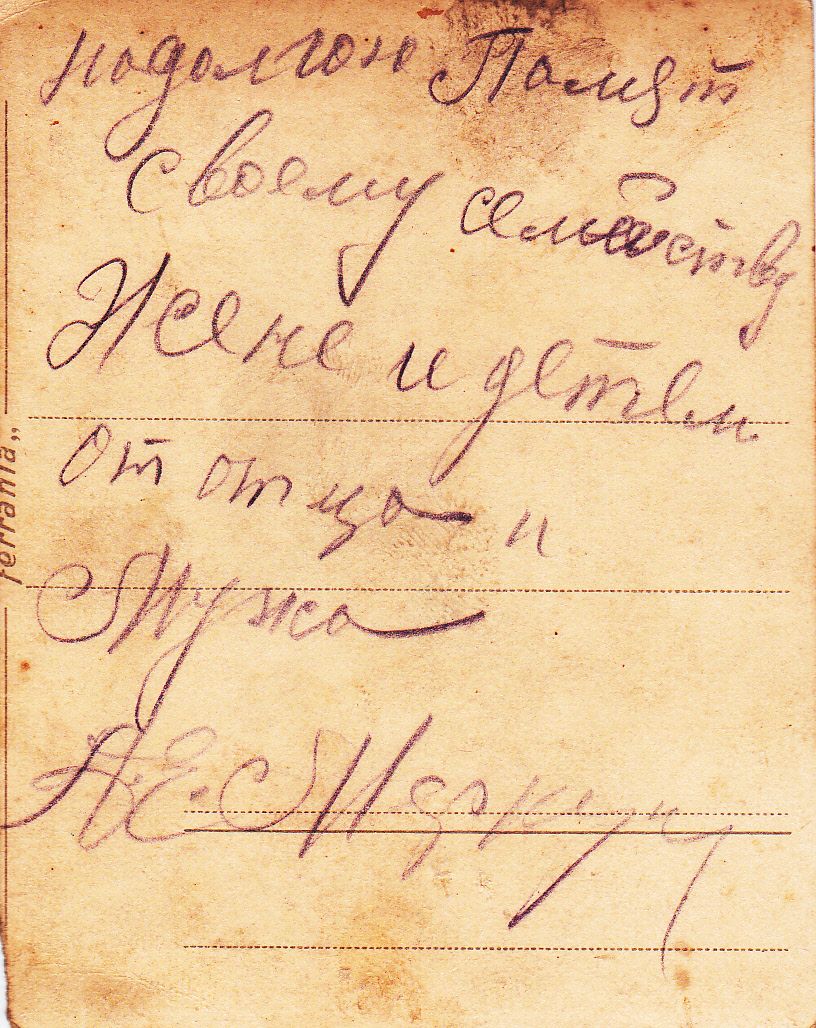 надолгою Памят
своему семейству
Жене и детьем
от отца и
Мужа
А.Е.
ferrania„